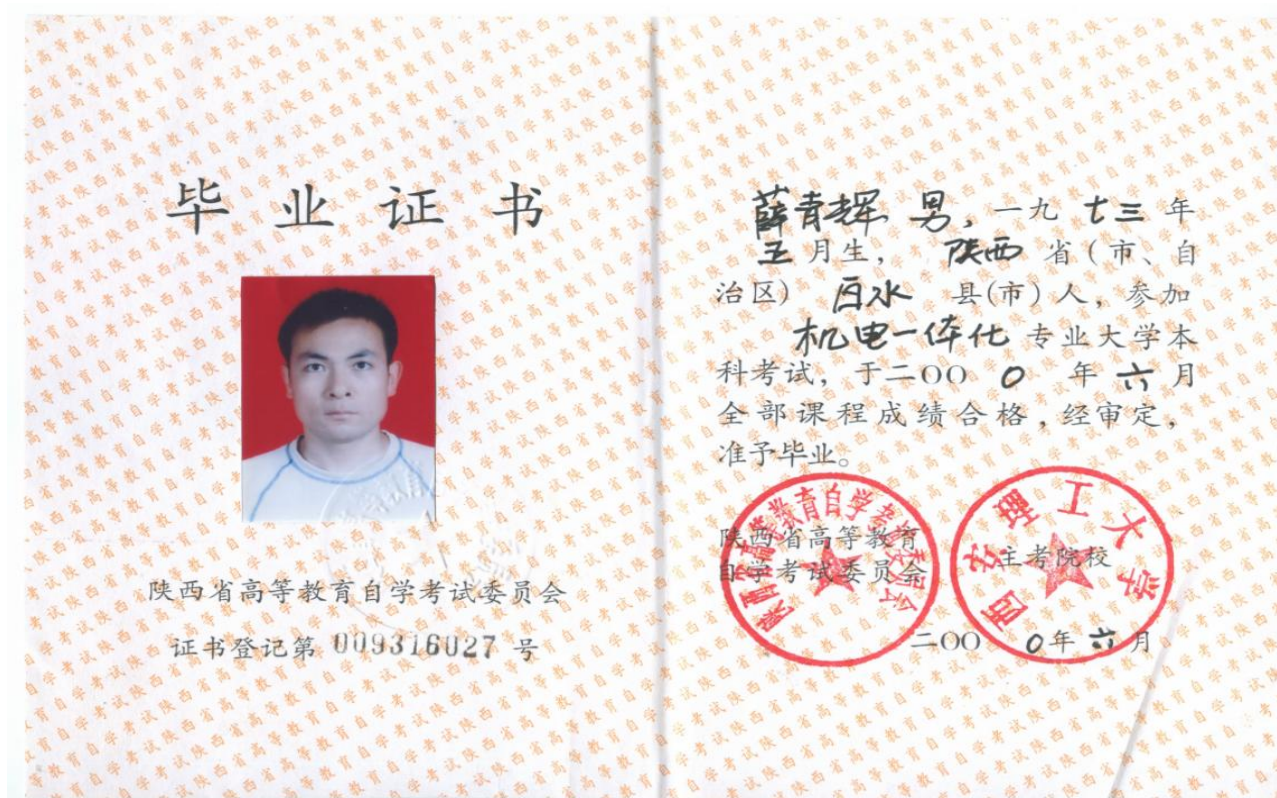 毕业证书
陕西省高等教育自学考试委员会
证书登记第 009316027 号
薛青辉 男，一九七三年
五月生，陕西省(市、自
治区)白水县(市)人，参加
机电一体化专业大学本
科考试，于二〇〇〇年六月
全部课程成绩合格，经审定，
准予毕业。
陕西省高等教育自学考试委员会
西安理工大学
陕西省高等教育
自学考试委员会
主考院校
二〇〇〇年六月